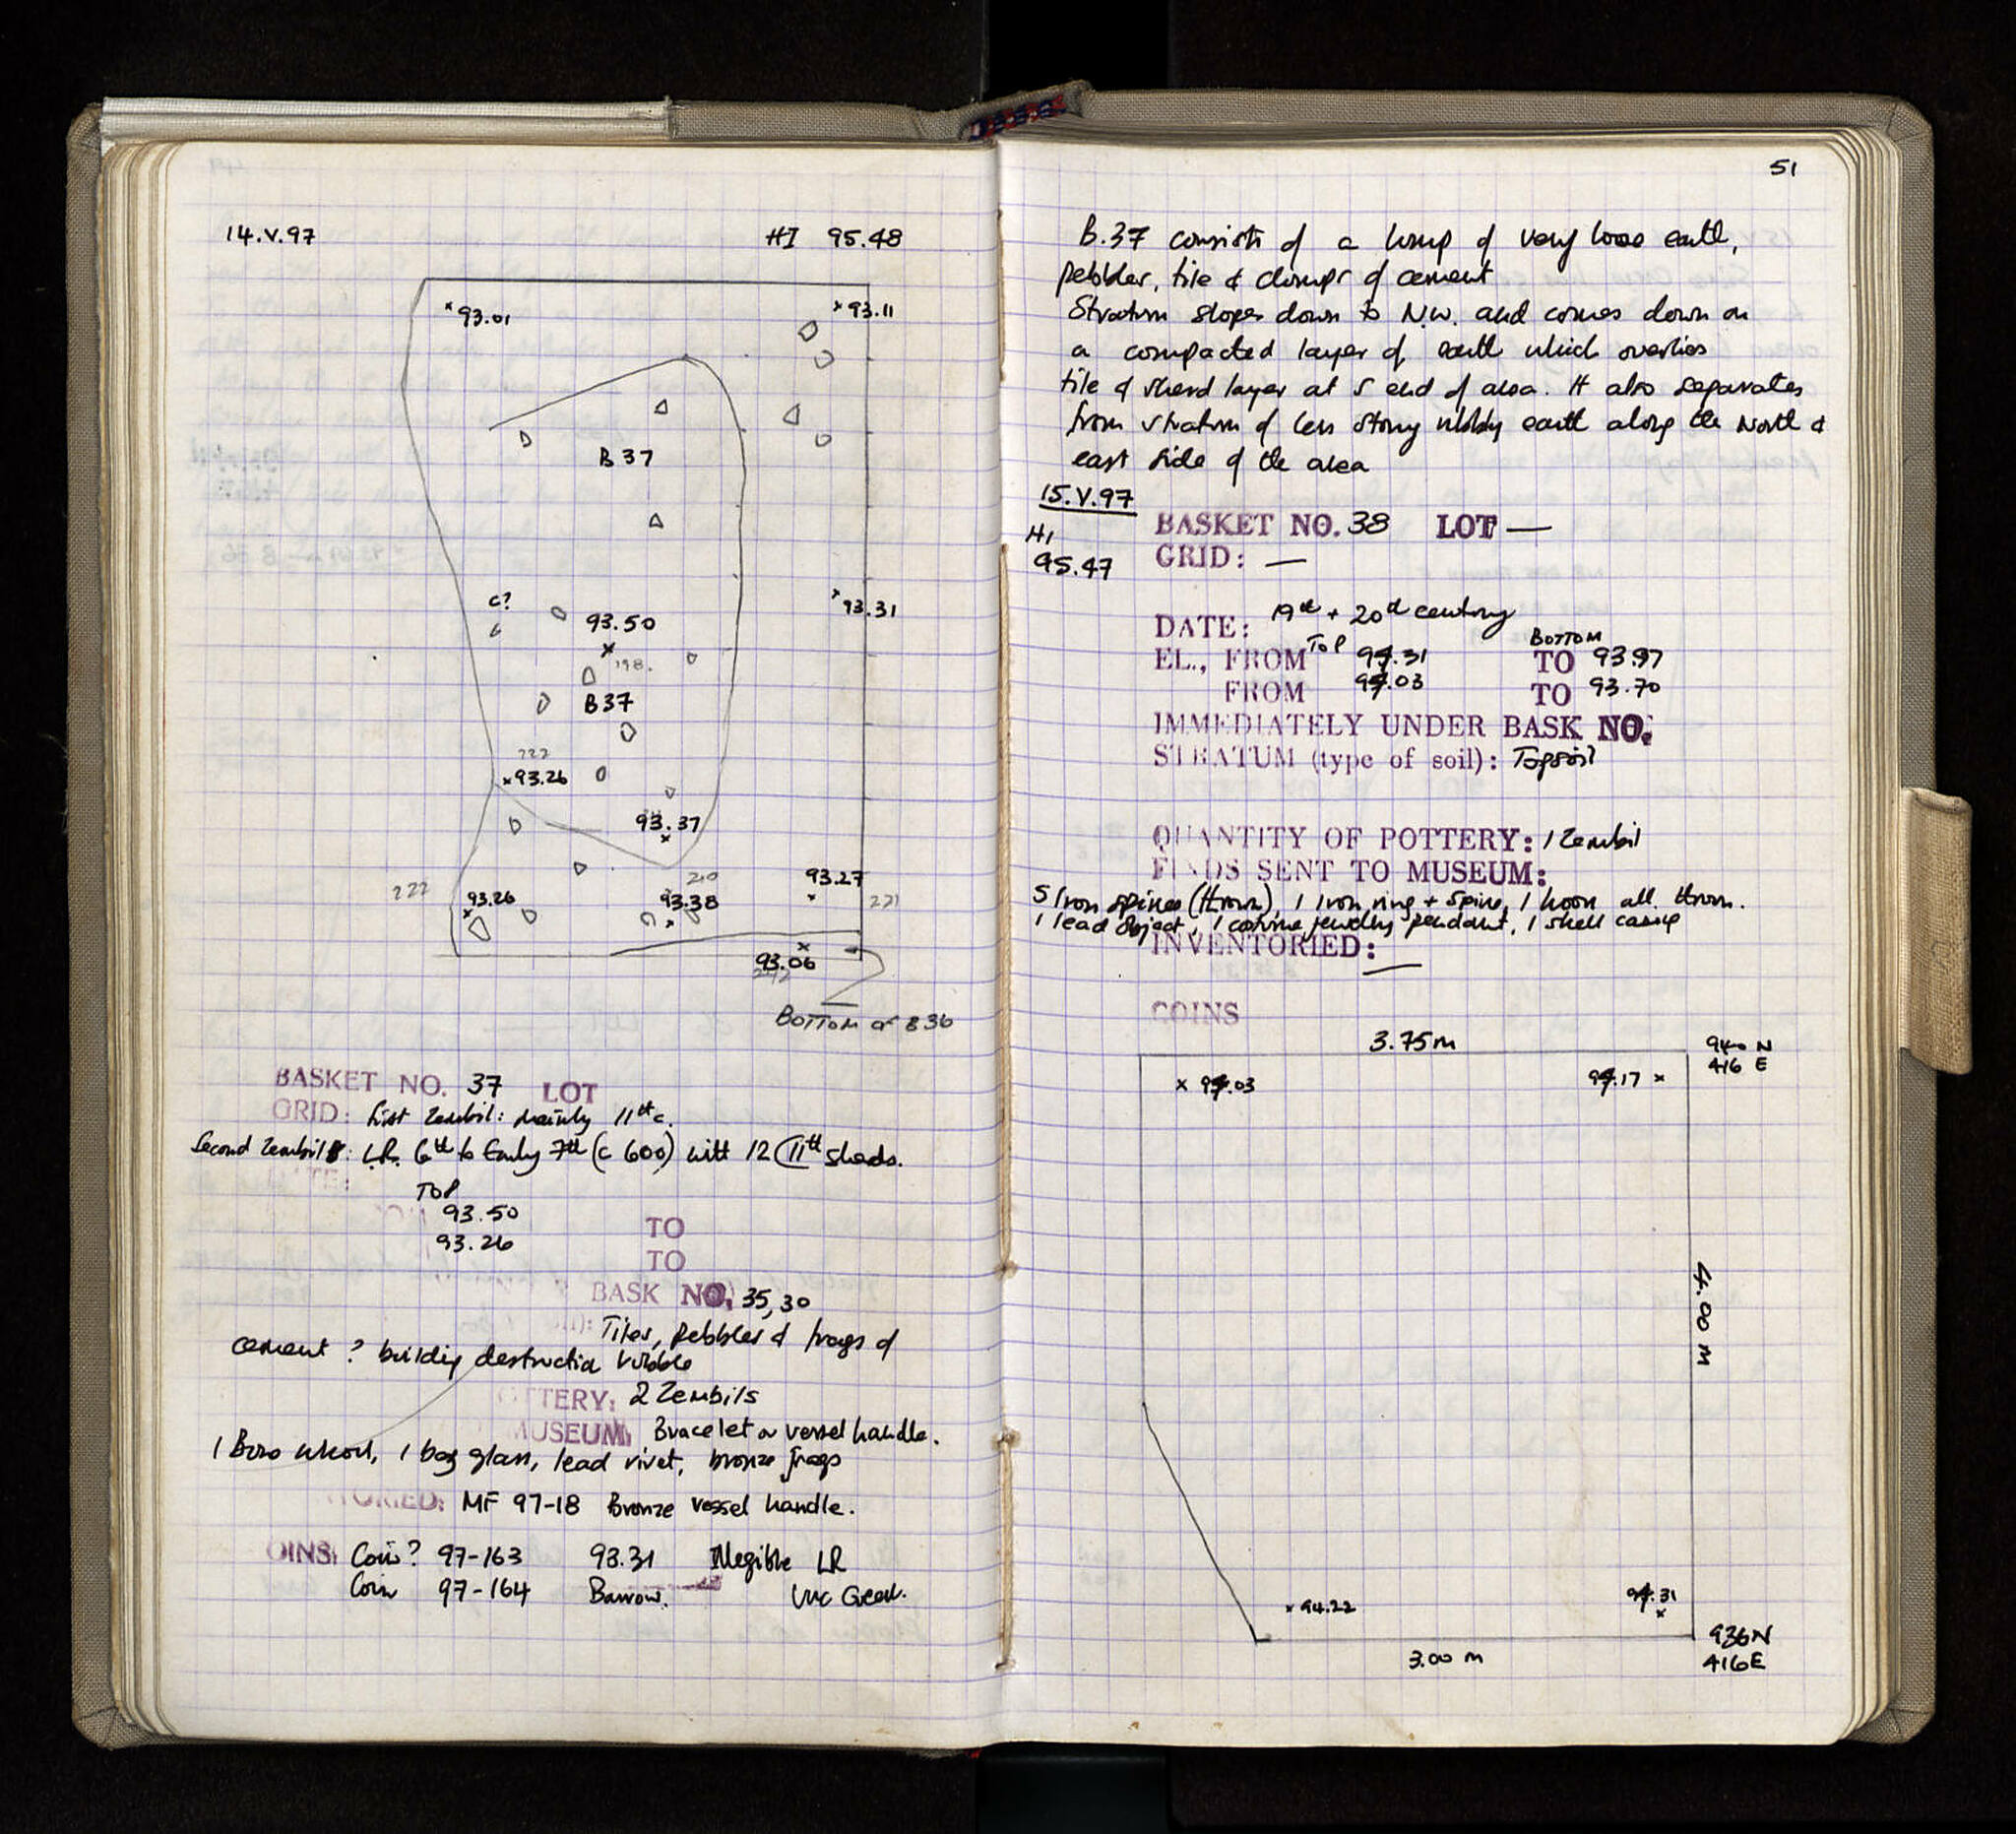 14.V.97
HI 95.48
93.01
93.11
B 37
c?
93.50
198.
93.31
B37
222
93.26
93.37
93.27
222
93.26
210
93.38
221
93.06
242
BOTTOM OF B36
BASKET NO. 37 LOT
GRID: First Zembil: mainly 11th c.
Second Zembil: L.R. 6th to Early 7th (c 600) with 12 11th sherds.
TOP
93.50 TO
93.26 TO
BASK NO. 35, 30
Tiles, pebbles & frags of
cement ? building destruction rubble
TTERY: 2 Zembils
MUSEUM: Bracelet or vessel handle.
1 Bone whorl, 1 bag glass, lead rivet, bronze frags
TORIED: MF 97-18 Bronze vessel handle.
OINS: Coin? 97-163 93.31 Illegible LR
Coin 97-164 Barrow. Unc Greek.
51
B.37 consists of a lump of very loose earth,
pebbles, tile & clumps of cement
Stratum slopes down to N.W. and comes down on
a compacted layer of earth which overlies
tile & sherd layer at S end of area. It also separates
from stratum of less stony nobbly earth along the North &
east side of the area
15.V.97
HI
95.47
BASKET NO. 38 LOT —
GRID: —
DATE: 19th + 20th century
EL., FROM TOP 94.31 BOTTOM TO 93.97
FROM 94.03 TO 93.70
IMMEDIATELY UNDER BASK NO.
STRATUM (type of soil): Topsoil
QUANTITY OF POTTERY: 1 Zembil
FINDS SENT TO MUSEUM:
5 Iron spikes (thrown), 1 Iron ring + spike, 1 hook all thrown.
1 lead object, 1 costume jewelry pendant, 1 shell casing
INVENTORIED: —
COINS
3.75 m
940 N
416 E
94.03
94.17
4.00 M
94.22
94.31
936N
416E
3.00 m